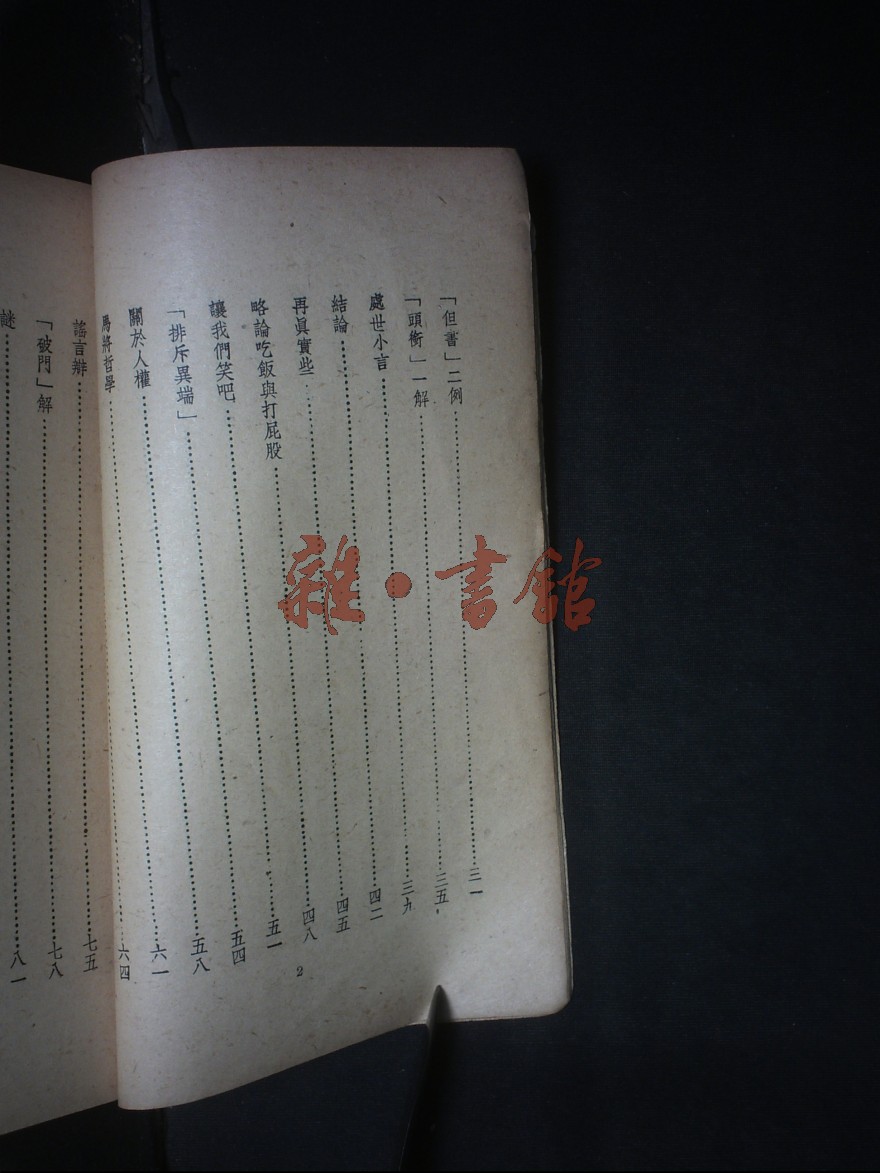 「但書」二例……三一
「頭銜」一解……三五
處世小言……三九
結論……四二
再眞實些……四五
略論吃飯與打屁股……四八
讓我們笑吧……五一
「排斥異端」……五四
關於人權……五八
馬將哲學……六一
謠言辯……六四
「破門」解……七五
謎……七八
八一
2
雜·書館